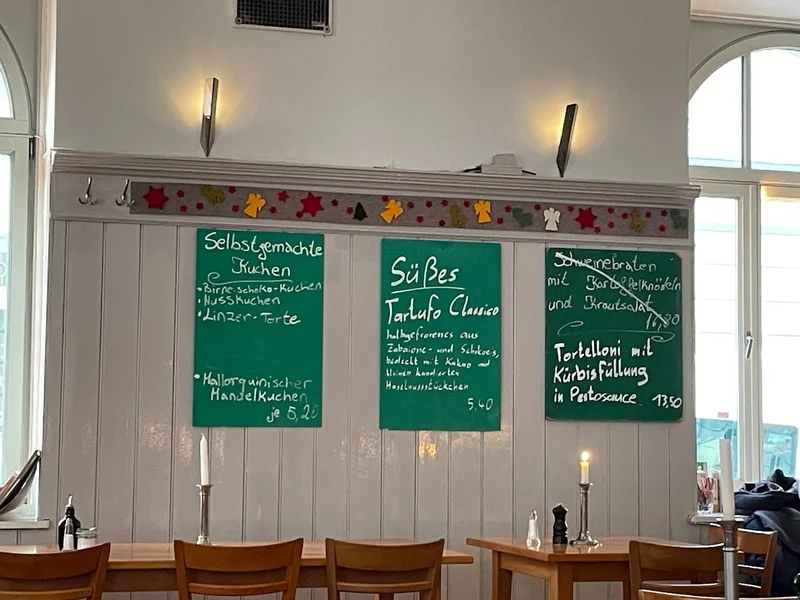 Selbstgemachte
Kuchen
• Birne-Schoko-Kuchen
• Nusskuchen
• Linzer-Torte
• Mallorquinischer
Mandelkuchen
je 5,20
Süßes
Tartufo Classico
halbgefrorenes aus
Zabaione- und Schokoeis,
bedeckt mit Kakao und
kleinen kandierten
Haselnussstückchen
5,40
Schweinebraten
mit Kartoffelknödeln
und Krautsalat
Tortelloni mit
Kürbisfüllung
in Pestosauce. 13,50